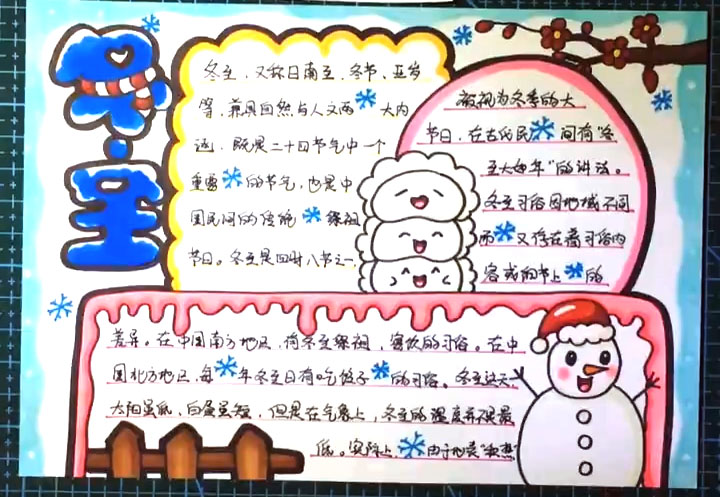 冬至
冬至，又称日南至、冬节、亚岁
等，兼具自然与人文两大内
涵，既是二十四节气中一个
重要的节气，也是中
国民间的传统祭祖
节日。冬至是四时八节之一
被视为冬季的大
节日，在古代民间有"冬
至大如年"的讲法。
冬至习俗因地域不同
而又存在着习俗内
容或细节上的
差异。在中国南方地区，有冬至祭祖、宴饮的习俗。在中
国北方地区，每年冬至日有吃饺子的习俗。冬至这天，
太阳虽低、白昼虽短，但是在气象上，冬至的温度并不是最
低。实际上，由于地表"积热"